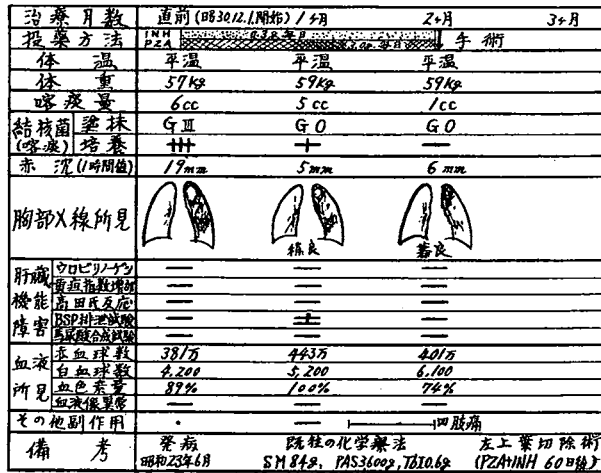 治療月数 直前(昭30.12.1.開始) 1ヶ月 2ヶ月 3ヶ月
投薬方法 INH 0.3g.毎日 手術
PZA 毎日
体温 平温 平温 平温
体重 57kg 59kg 59kg
喀痰量 6cc 5cc 1cc
結核菌(喀痰) 塗抹 GⅢ G0 G0
培養 +++ + —
赤沈(1時間値) 19mm 5mm 6mm
胸部X線所見
稍良 著良
肝臓機能障害 ウロビリノーゲン — — —
黄疸指数増加 — — —
高田氏反応 — — —
BSP排泄試験 — ± —
馬尿酸合成試験 — — —
血液所見 赤血球数 381万 443万 401万
白血球数 4,200 5,200 6,100
血色素量 89% 100% 74%
血液像異常 — — —
その他副作用 四肢痛
備考 発病 既往の化学療法 左上葉切除術
昭和23年6月 SM84g, PAS3600g, TbI0.6g (PZA+INH 60日後)